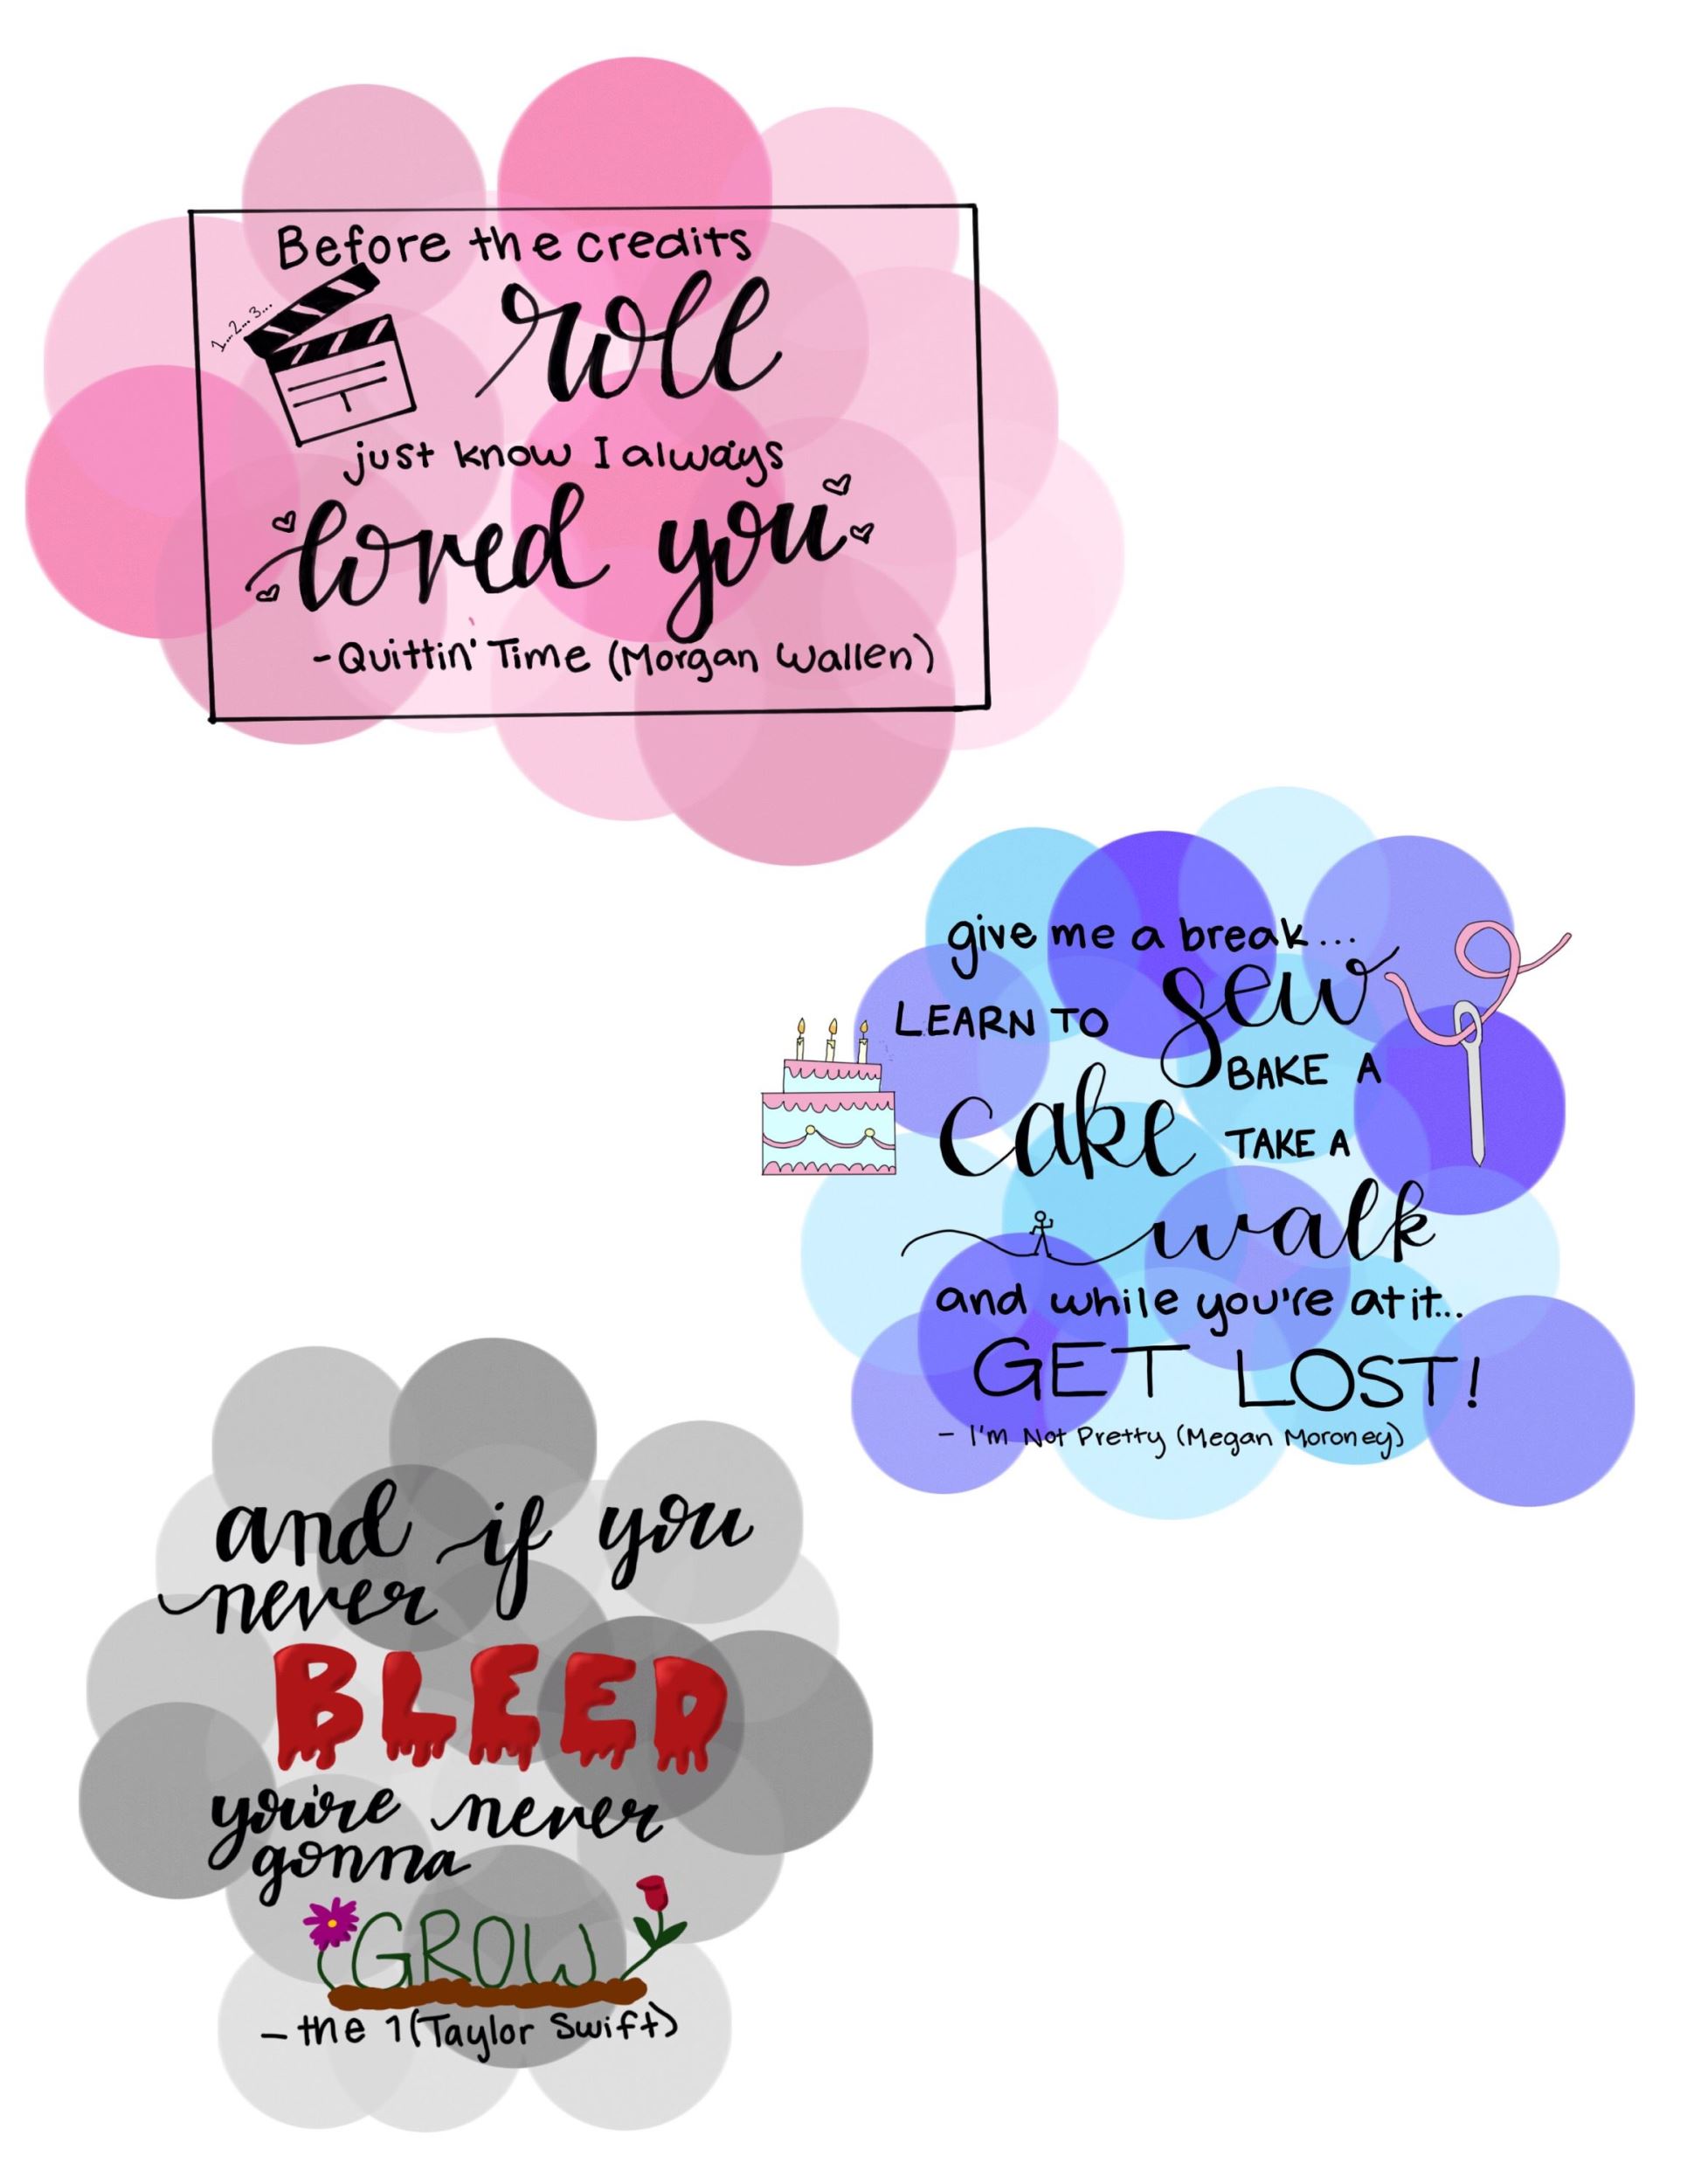 Before the credits
1...2...3...
roll
just know I always
loved you
-Quittin' Time (Morgan Wallen)
give me a break...
LEARN TO sew
BAKE A
cake TAKE A
walk
and while you're at it...
GET LOST!
- I'm Not Pretty (Megan Moroney)
and if you
never
BLEED
you're never
gonna
GROW
- the 1 (Taylor Swift)